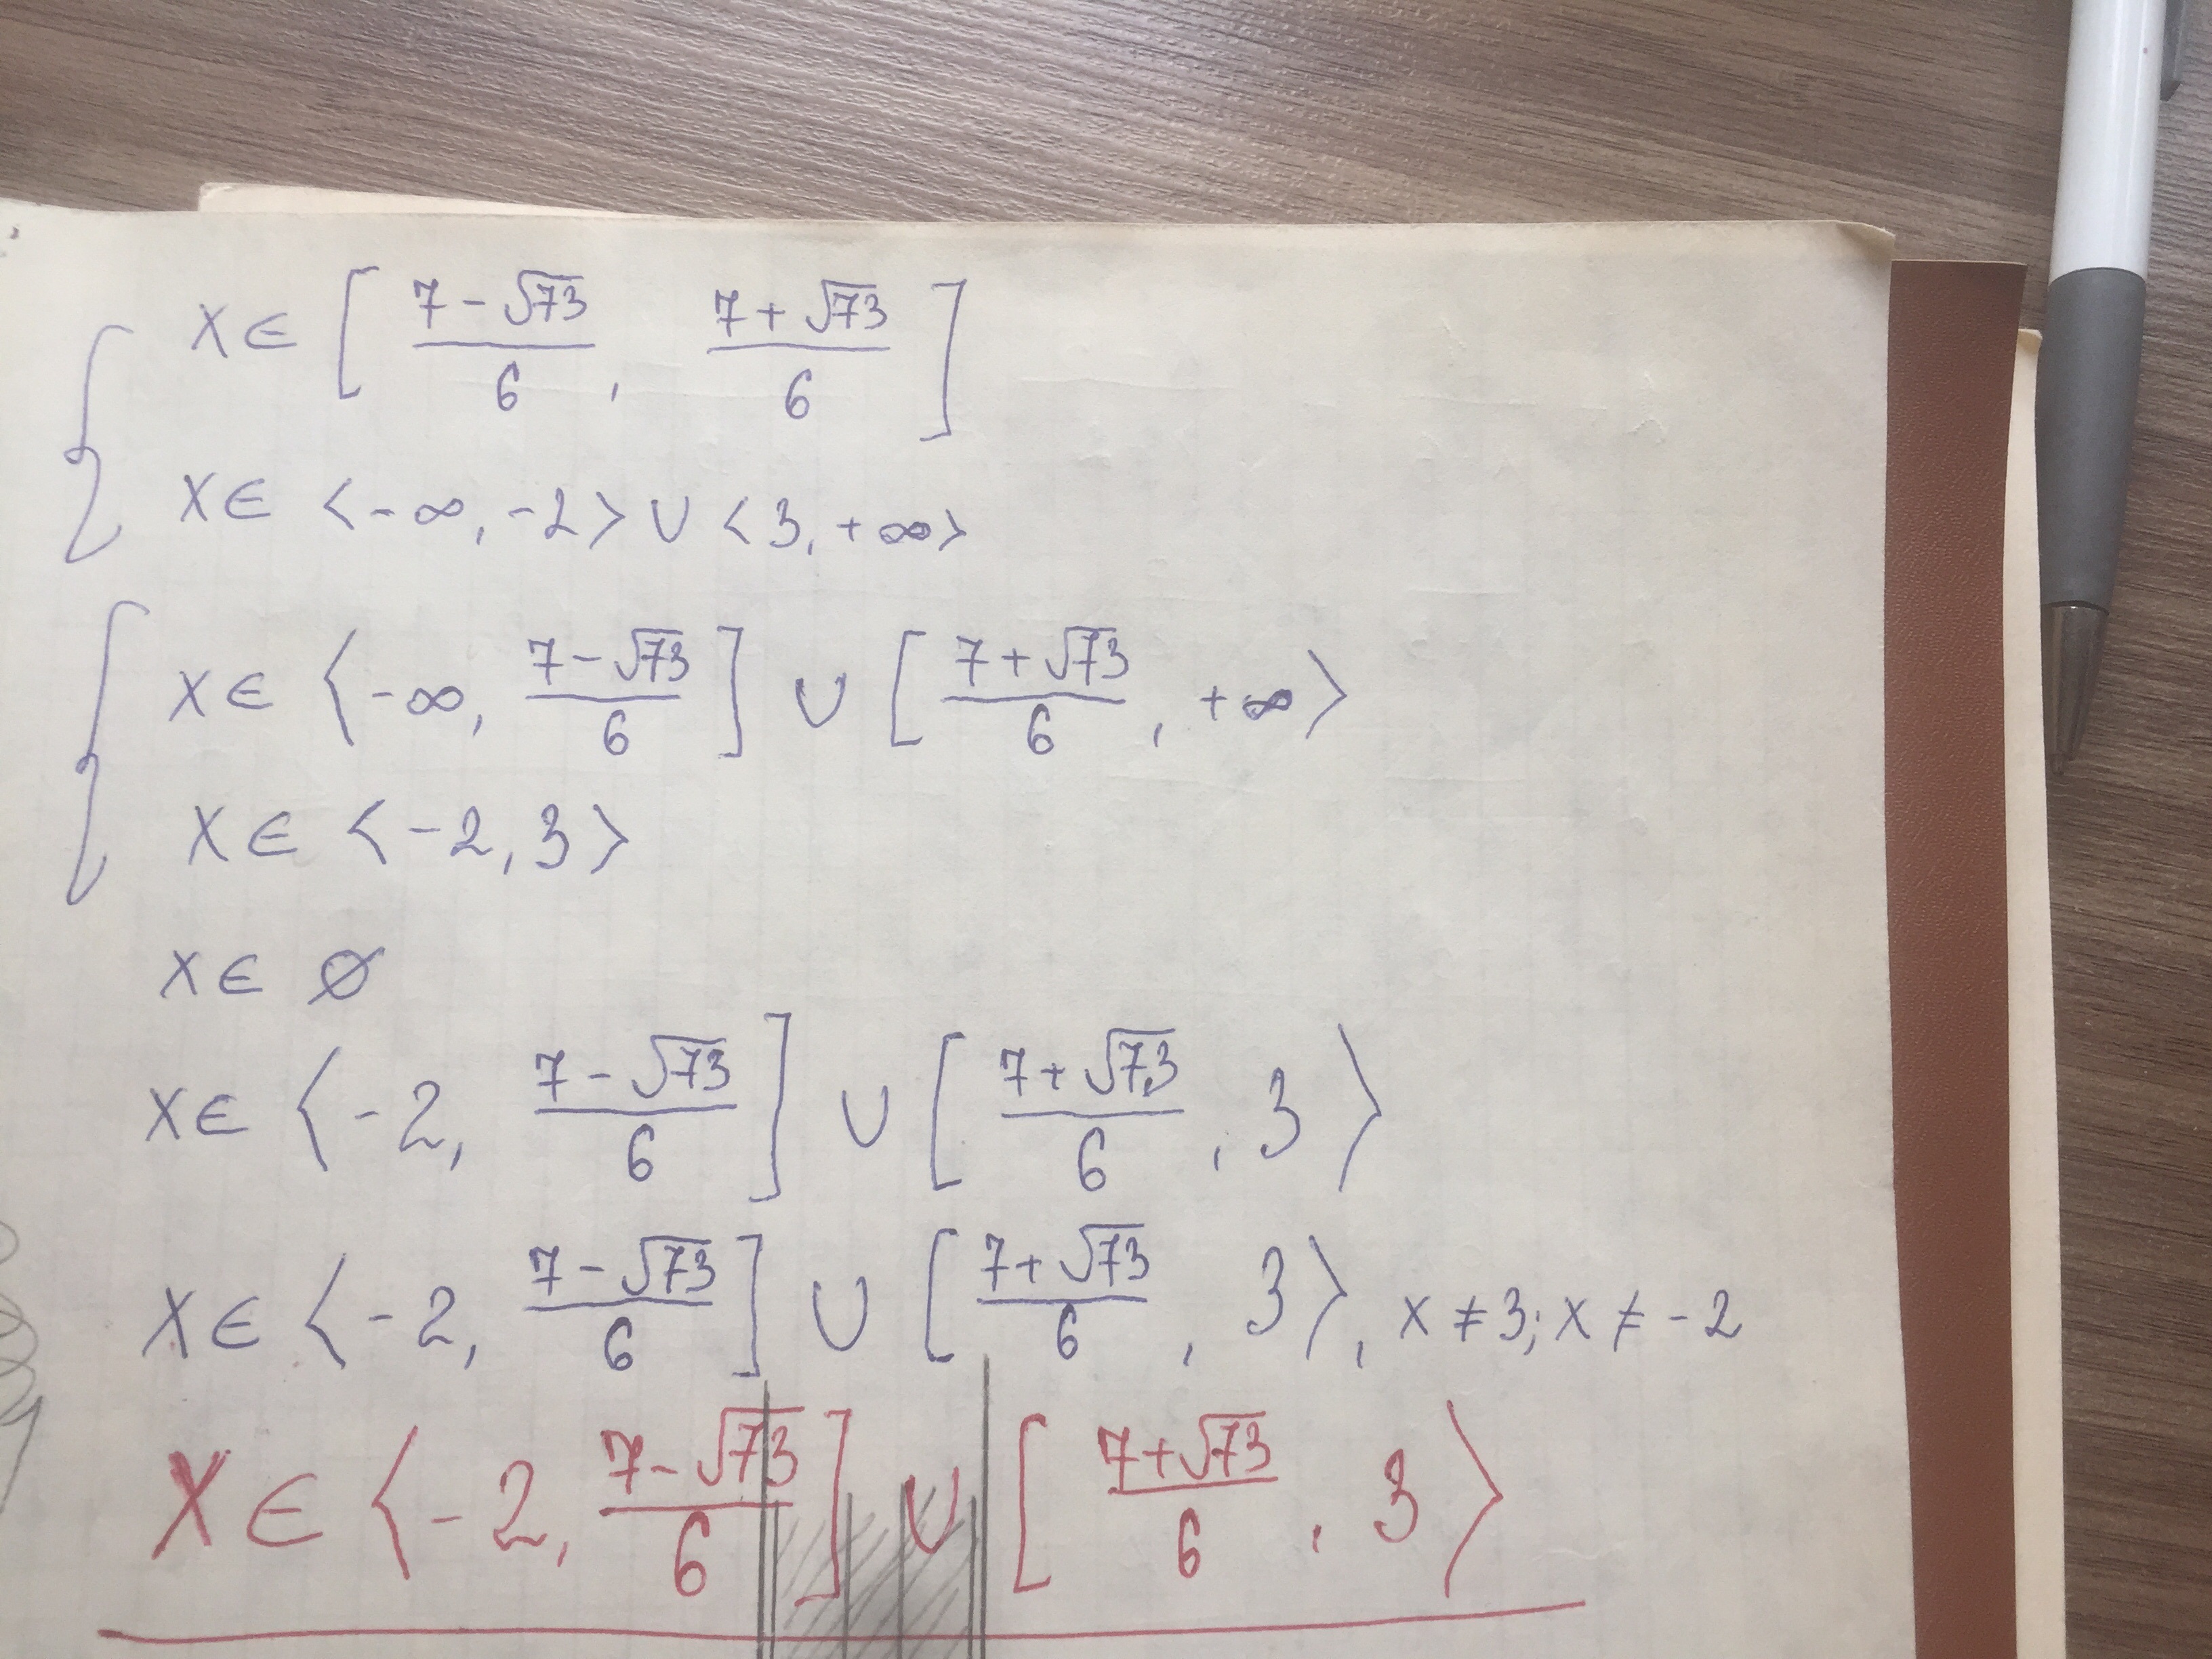 { x ∈ [ (7 - √73)/6 , (7 + √73)/6 ]
x ∈ < -∞, -2 > ∪ < 3, +∞ >
{ x ∈ < -∞, (7 - √73)/6 ] ∪ [ (7 + √73)/6 , +∞ >
x ∈ < -2, 3 >
x ∈ ∅
x ∈ < -2, (7 - √73)/6 ] ∪ [ (7 + √73)/6 , 3 >
x ∈ < -2, (7 - √73)/6 ] ∪ [ (7 + √73)/6 , 3 >, x ≠ 3; x ≠ -2
x ∈ < -2, (7 - √73)/6 ] ∪ [ (7 + √73)/6 , 3 >